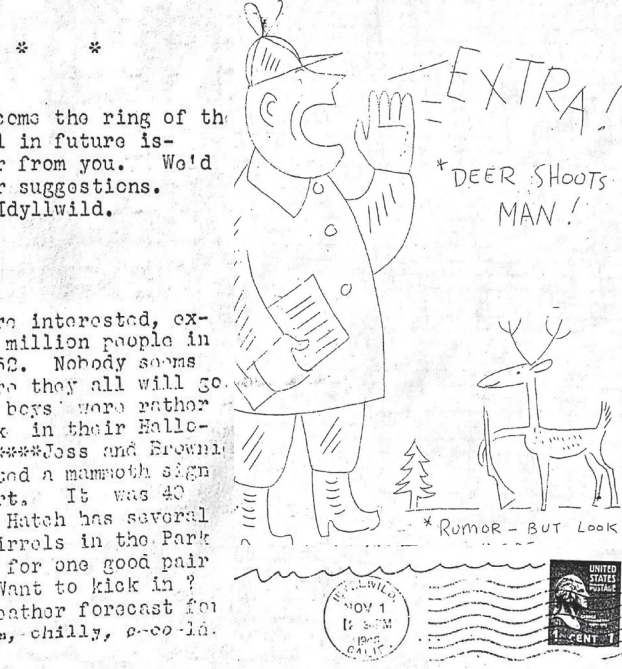 * *
come the ring of the
l in future is-
r from you. We'd
r suggestions.
Idyllwild.
re interested, ex-
million people in
52. Nobody seems
re they all will go.
boys were rather
k in their Hallo-
****Jess and Brown
ted a mammoth sign
rt. It was 40
Hatch has several
irrels in the Park
for one good pair
Want to kick in ?
eather forecast for
m, chilly, c-co-ld.
EXTRA!
*DEER SHOOTS
MAN!
*RUMOR - BUT LOOK
NOV 1
PM
CALIF.
UNITED
STATES
POSTAGE
1 CENT 1